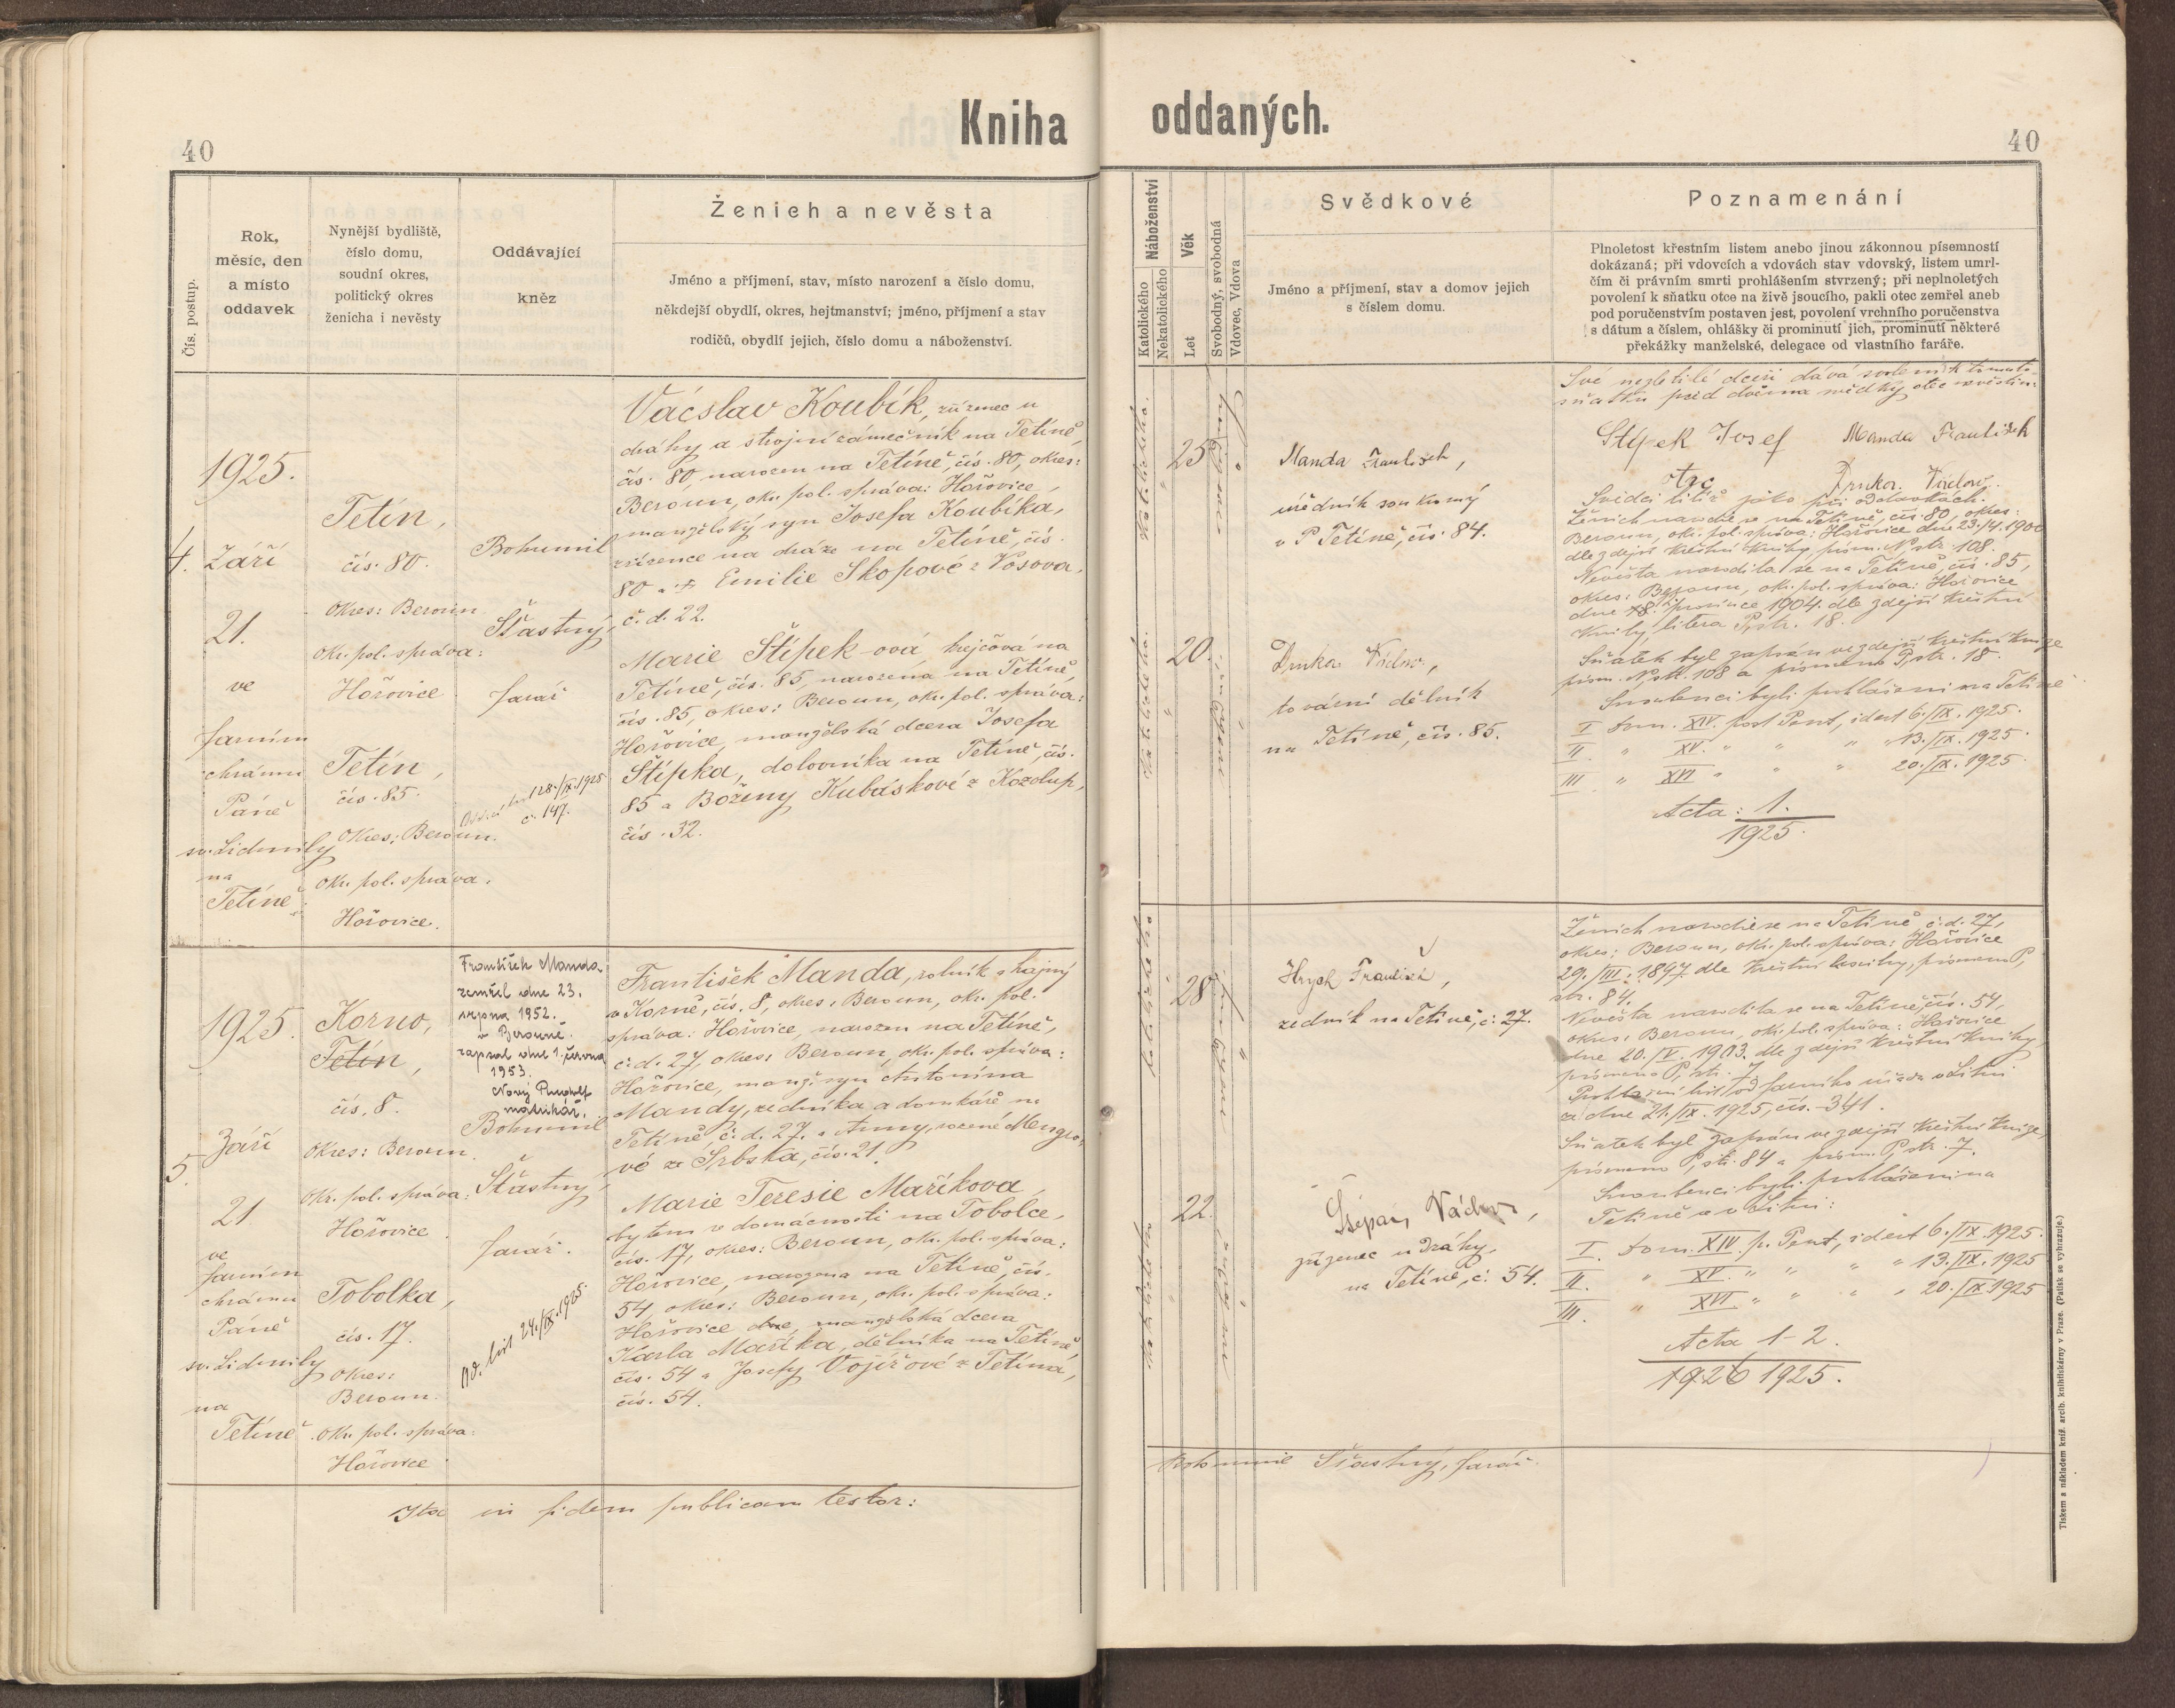 Kniha oddaných.
40
40
Čís. postup.
Rok,
měsíc, den
a místo
oddavek
Nynější bydliště,
číslo domu,
soudní okres,
politický okres
ženicha i nevěsty
Oddávající
kněz
Ženich a nevěsta
Jméno a příjmení, stav, místo narození a číslo domu,
někdejší obydlí, okres, hejtmanství; jméno, příjmení a stav
rodičů, obydlí jejich, číslo domu a náboženství.
Náboženství
Katolického
Nekatolického
Věk
Let
Svobodný, svobodná
Vdovec, Vdova
Svědkové
Jméno a příjmení, stav a domov jejich
s číslem domu.
Poznamenání
Plnoletost křestním listem anebo jinou zákonnou písemností
dokázaná; při vdovcích a vdovách stav vdovský, listem umrl-
čím či právním smrti prohlášením stvrzený; při neplnoletých
povolení k sňatku otce na živě jsoucího, pakli otec zemřel aneb
pod poručenstvím postaven jest, povolení vrchního poručenstva
s dátum a číslem, ohlášky či prominutí jich, prominutí některé
překážky manželské, delegace od vlastního faráře.
4.
1925.
Září
21.
ve
farním
chrámu
Páně
sv. Lidmily
na
Tetíně
Tetín,
čís. 80.
Okres: Beroun
Okr. pol. správa:
Hořovice
Tetín,
čís. 85.
Okres: Beroun.
Okr. pol. správa:
Hořovice.
Bohumil
Šťastný,
farář
28./IX.1925
č. 147.
Vácslav Koubík, zřízenec u
dráhy a strojní zámečník na Tetíně,
čís. 80, narozen na Tetíně, čís. 80, okres:
Beroun, okr. pol. správa: Hořovice,
manželský syn Josefa Koubíka,
zřízence na dráze na Tetíně, čís.
80 a Emilie Skopové z Vosova,
č. d. 22.
Marie Štípek-ová, krejčová na
Tetíně, čís. 85, narozená na Tetíně,
čís. 85, okres: Beroun, okr. pol. správa:
Hořovice, manželská dcera Josefa
Štípka, dolovníka na Tetíně, čís.
85 a Boženy Kubáskové z Kozolup,
čís. 32.
katolického.
25
katolického.
20.
Manda František,
úředník soukromý
v Tetíně, čís. 84.
Drnka Václav,
tovární dělník
na Tetíně, čís. 85.
Své nezletilé dceři dává svolení k tomuto
sňatku před dvěma svědky otec nevěstin:
Štípek Josef Manda František
otec Drnka Václav.
Svědci titíž jako při oddavkách.
Ženich narodil se na Tetíně, čís. 80, okres:
Beroun, okr. pol. správa: Hořovice dne 23./4. 1900
dle zdejší křestní knihy, písm. N, str. 108.
Nevěsta narodila se na Tetíně, čís. 85,
okres: Beroun, okr. pol. správa: Hořovice
dne prosince 1904. dle zdejší křestní
knihy, litera P, str. 18.
Sňatek byl zapsán ve zdejší křestní knize
písm. N str. 108 a písmeno P, str. 18.
Snoubenci byli prohlášeni na Tetíně
I dom. XIV. post Pent, id est 6./IX. 1925.
II. " XV. " " " " 13./IX. 1925.
III " XVI " " " 20./IX. 1925.
Acta: 1.
1925.
5.
1925.
Září
21
ve
farním
chrámu
Páně
sv. Lidmily
na
Tetíně
Korno,
Tetín,
čís. 8.
Okres: Beroun.
Okr. pol. správa:
Hořovice
Tobolka,
čís. 17.
Okres:
Beroun.
Okr. pol. správa:
Hořovice
František Manda
zemřel dne 23.
srpna 1952.
v Berouně.
zapsal dne 1. června
1953.
Nový Rudolf
matrikář.
Bohumil
Šťastný,
farář.
Od. list 24./IX. 1925.
František Manda, rolník a hajný
v Korně, čís. 8, okres: Beroun, okr. pol.
správa: Hořovice, narozen na Tetíně,
č. d. 27, okres: Beroun, okr. pol. správa:
Hořovice, manž. syn Antonína
Mandy, zedníka a domkáře na
Tetíně, č. d. 27. a Anny, rozené Mengro-
vé ze Srbska, čís. 21.
Marie Teresie Maříkova,
bytem v domácnosti na Tobolce,
čís. 17, okres: Beroun, okr. pol. správa:
Hořovice, narozena na Tetíně, čís.
54, okres: Beroun, okr. pol. správa:
Hořovice dne, manželská dcera
Karla Maříka, dělníka na Tetíně,
čís. 54 a Josefy Vojířové z Tetína,
čís. 54.
katolického
28
katolického
22.
Hrych František,
zedník na Tetíně, č. 27.
Štěpán Václav,
zřízenec u dráhy,
na Tetíně, č. 54.
Ženich narodil se na Tetíně, č. d. 27,
okres: Beroun, okr. pol. správa: Hořovice
29./III. 1897. dle křestní knihy, písmeno P,
str. 84.
Nevěsta narodila se na Tetíně, čís. 54,
okres: Beroun, okr. pol. správa: Hořovice
dne 20./V. 1903. dle zdejší křestní knihy
písmeno P, str. 7
Prohlášní list od farního úřadu v Litni
ze dne 21./IX. 1925, čís. 341.
Sňatek byl zapsán ve zdejší křestní knize,
písmeno P, str. 84 a písm. P, str. 7.
Snoubenci byli prohlášeni na
Tetíně a v Litni:
I. dom. XIV p. Pent, id est 6./IX. 1925.
II. " XV. " " " " 13./IX. 1925
III. " XVI. " " " " 20./IX 1925
Acta 1-2.
1926 1925.
Ita in fidem publicam testor:
Bohumil Šťastný, farář.
Tiskem a nákladem kníž. arcib. knihtiskárny v Praze. (Patisk se vyhrazuje.)